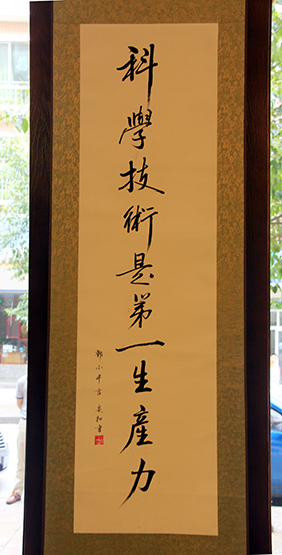 科學技術是第一生產力
鄧小平言